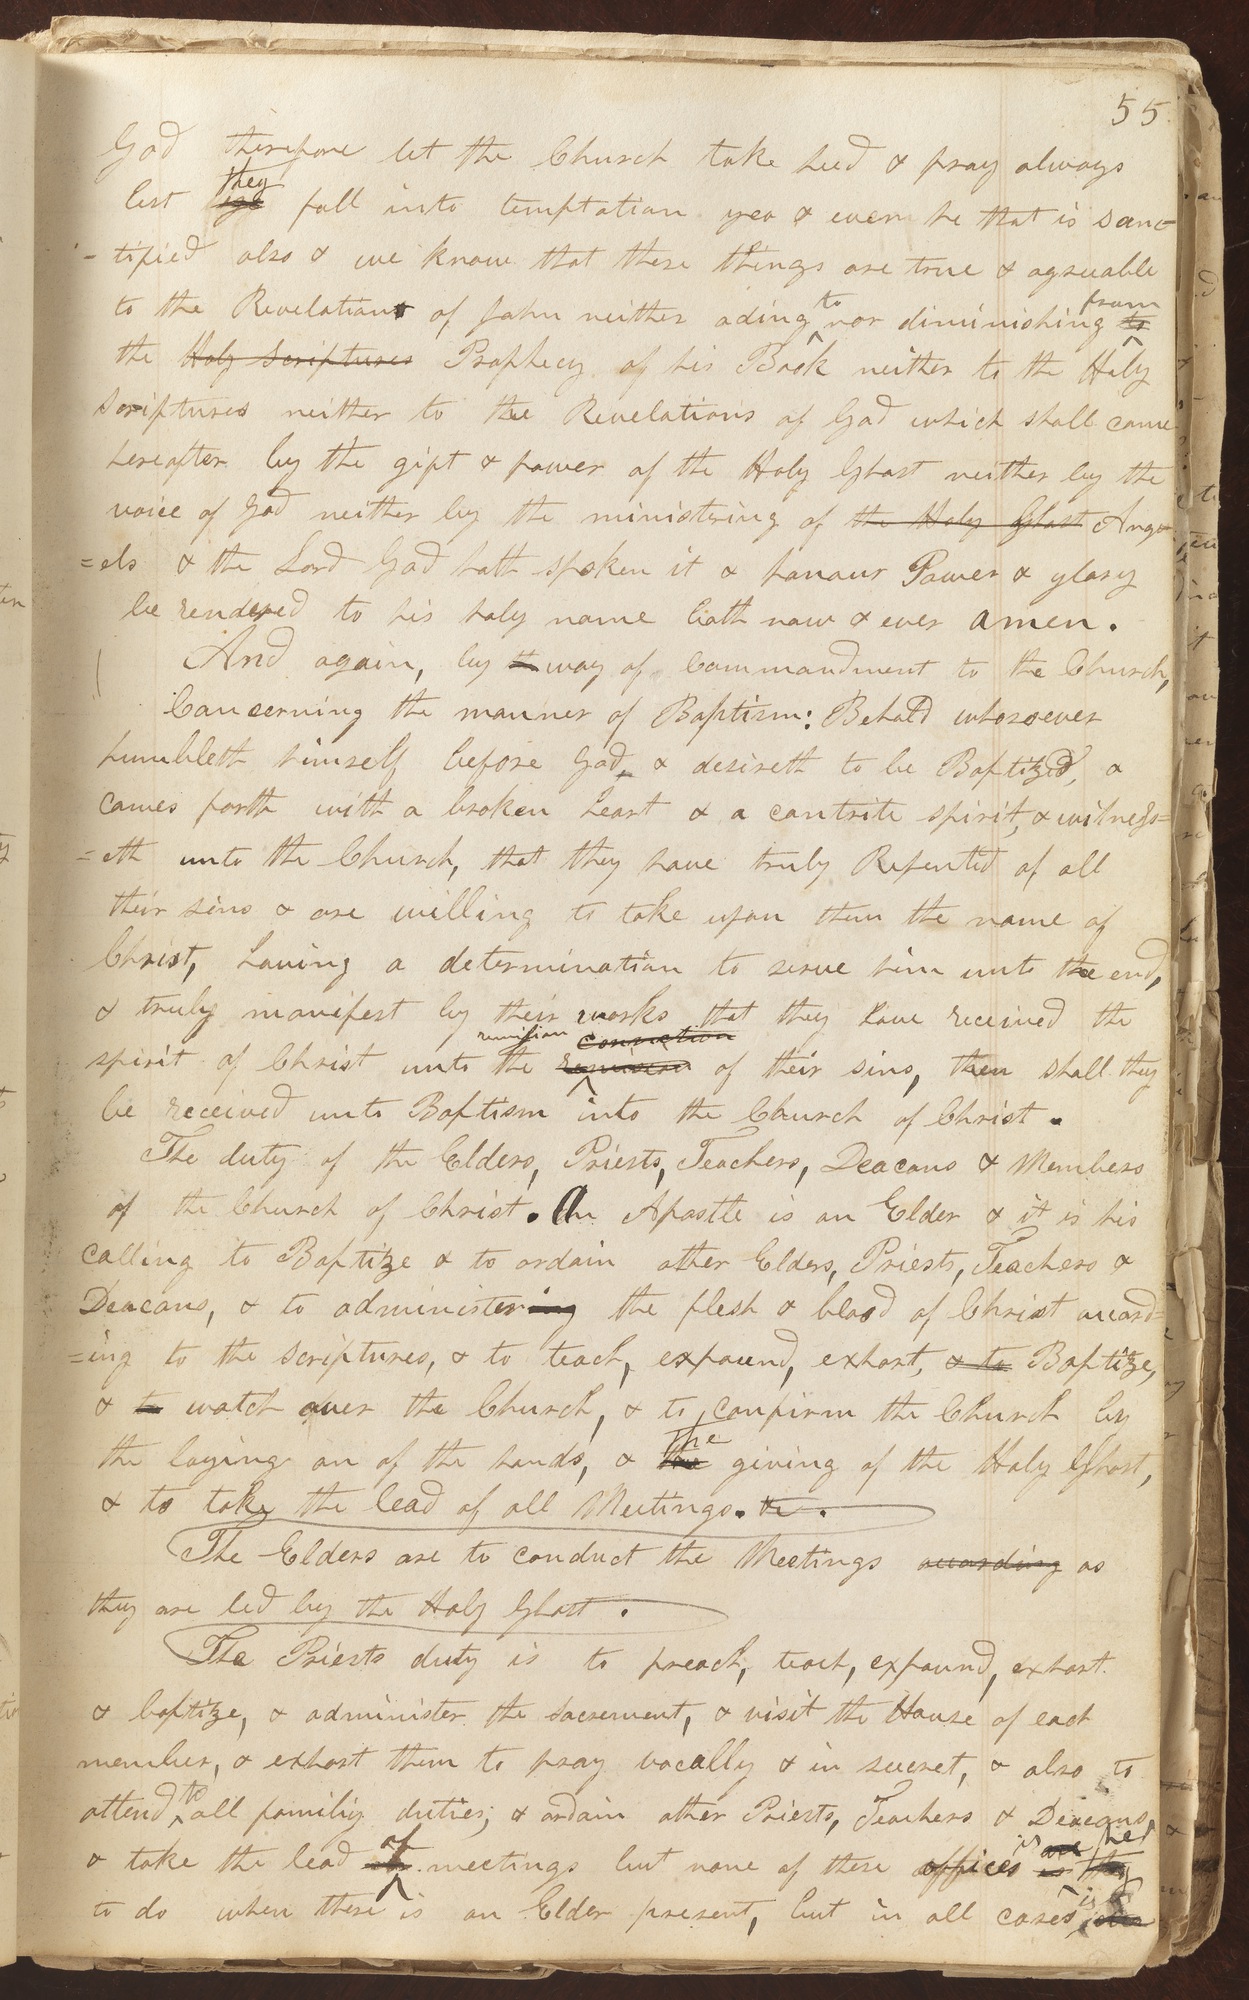 55
God therefore let the Church take heed & pray always
lest they fall into temptation yea & even he that is sanc=
-tified also & we know that these things are true & agreeable
to the Revelations of John neither ading to nor diminishing from
the Holy Scriptures Prophecy of his Book neither to the Holy
Scriptures neither to the Revelations of God which shall come
hereafter by the gift & power of the Holy Ghost neither by the
voice of God neither by the ministering of the Holy Ghost Ang=
=els & the Lord God hath spoken it & honour Power & glory
be rendered to his holy name both now & ever amen.
And again, by way of Commandment to the Church,
Concerning the manner of Baptism: Behold whosoever
humbleth himself before God, & desireth to be Baptized, &
comes forth with a broken heart & a contrite spirit, & witness=
=eth unto the Church, that they have truly Repented of all
their sins & are willing to take upon them the name of
Christ, having a determination to serve him unto the end,
& truly manifest by their works that they have received the
remission conviction
spirit of Christ unto the of their sins, then shall they
be received unto Baptism into the Church of Christ.
The duty of the Elders, Priests, Teachers, Deacons & Members
of the Church of Christ. An Apostle is an Elder & it is his
calling to Baptize & to ordain other Elders, Priests, Teachers &
Deacons, & to administering the flesh & blood of Christ accord=
=ing to the scriptures, & to teach, expound, exhort, & to Baptize,
& to watch over the Church, & to confirm the Church by
the laying on of the hands, & the the giving of the Holy Ghost,
& to take the lead of all Meetings. &c.
The Elders are to conduct the Meetings according as
they are led by the Holy Ghost.
The Priests duty is to preach, teach, expound, exhort
& baptize, & administer the sacrement, & visit the House of each
member, & exhort them to pray vocally & in secret, & also to
attend to all familiy duties; & ordain other Priests, Teachers & Deacons,
& take the lead of meetings but none of these offices is are he
to do when there is an Elder present, but in all cases is